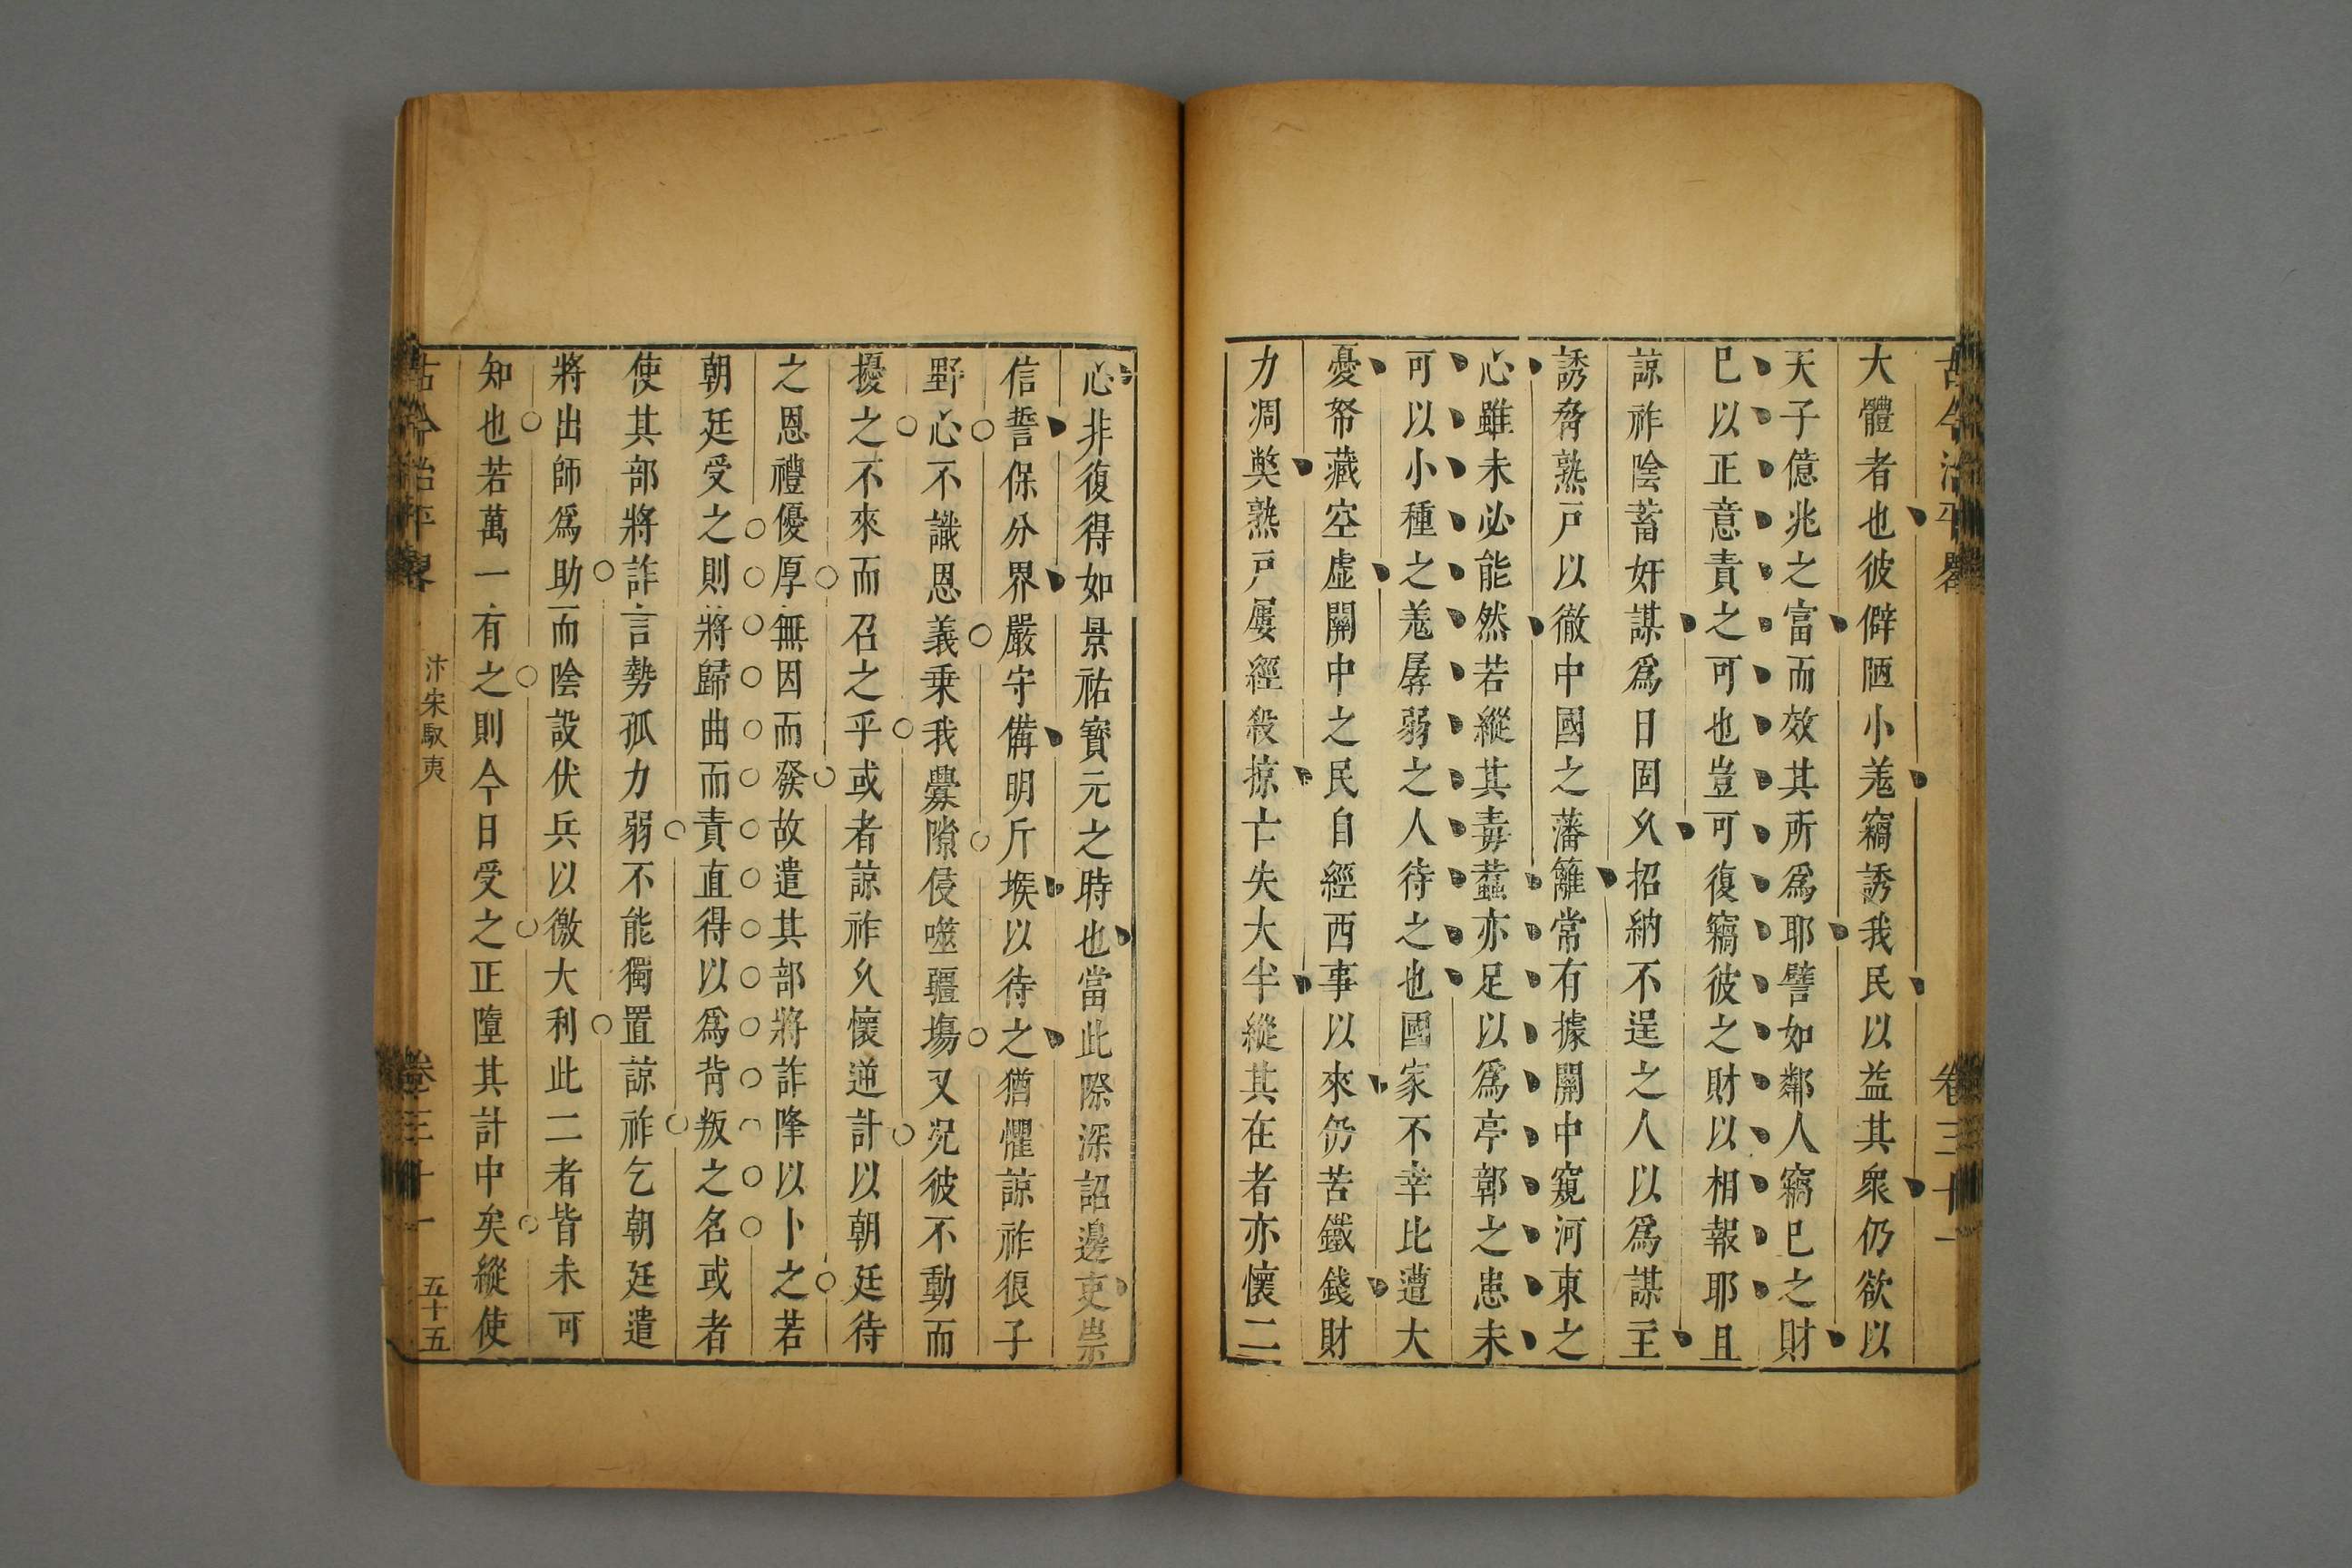 古今治平畧
卷三十一
大體者也彼僻陋小羗竊誘我民以益其衆仍欲以
天子億兆之富而效其所爲耶譬如鄰人竊巳之財
巳以正意責之可也豈可復竊彼之財以相報耶且
諒祚陰蓄奸謀爲日固久招納不逞之人以爲謀主
誘脅熟戸以徹中國之藩籬常有據關中窺河東之
心雖未必能然若縱其毒蠚亦足以爲亭鄣之患未
可以小種之羗孱弱之人待之也國家不幸比遭大
憂帑藏空虛關中之民自經西事以來仍苦鐵錢財
力凋獘熟戸屢經殺掠亡失大半縱其在者亦懷二
心非復得如景祐寶元之時也當此際深詔邊吏崇
信誓保分界嚴守備明斤堠以待之猶懼諒祚狠子
野心不識恩義乗我釁隙侵噬疆塲又况彼不動而
擾之不來而召之乎或者諒祚久懷逆計以朝廷待
之恩禮優厚無因而發故遣其部將詐降以卜之若
朝廷受之則將歸曲而責直得以爲背叛之名或者
使其部將詐言勢孤力弱不能獨置諒祚乞朝廷遣
將出師爲助而陰設伏兵以徼大利此二者皆未可
知也若萬一有之則今日受之正墮其計中矣縱使
古今治平畧
汴宋馭夷
卷三十一
五十五